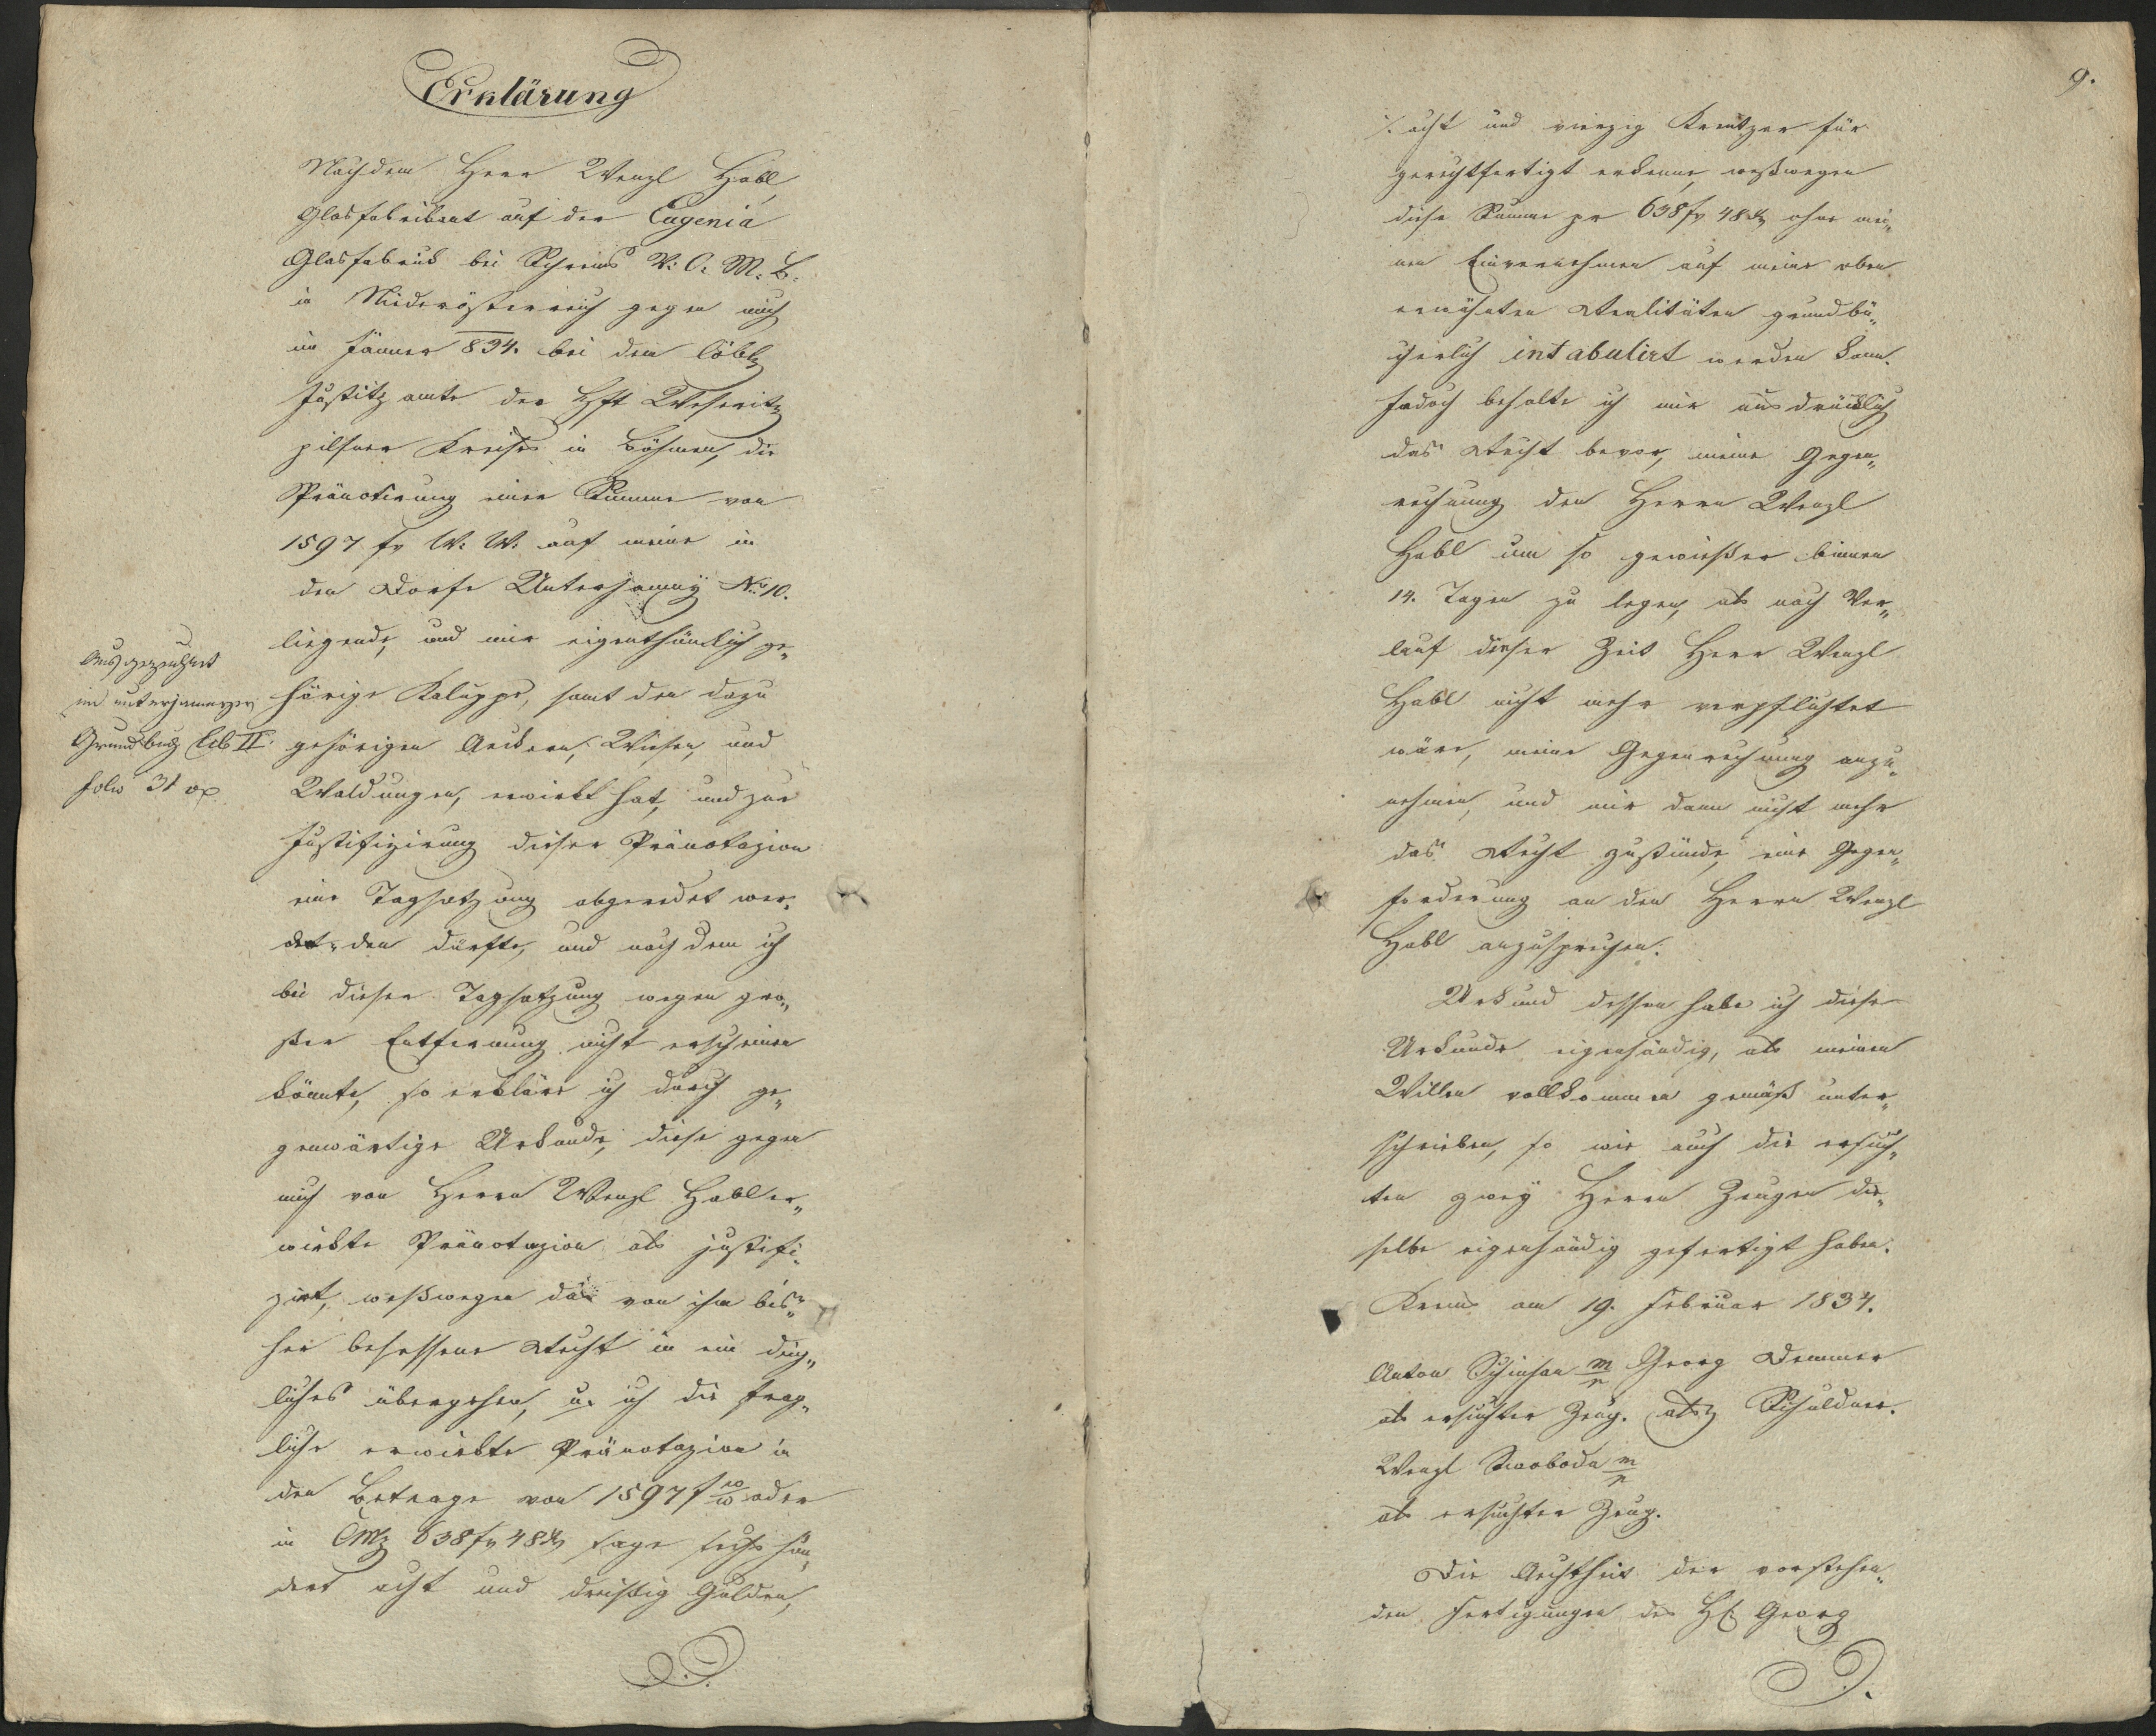 Erklärung
Nachdem Herr Wenzl Habl,
Glasfabrikant auf der Eugenia
Glasfabrick bei Schrems V: O: M: B:
in Niederösterreich gegen mich
im Jänner 834. bei dem löbl.
Justitzamte der Hft Weseritz
pilsner Kreises in Böhmen, die
Pränotirung einer Summe von
1597 fr W: W: auf meine in
dem Dorfe Unterjamny No 10.
liegende, und mir eigenthümlich ge„
hörige Kaluppe, samt den dazu
gehörigen Aeckern, Wiesen, und
Waldungen, erwirkt hat, und zur
Justifizirung dieser Pränotazion
eine Tagsatzung abgeredet wer„
den dürfte, und nachdem ich
bei dieser Tagsatzung wegen gro„
ßer Entfernung nicht erscheinen
könnte, so erkläre ich durch ge„
genwärtige Urkunde, diese gegen
mich von Herrn Wenzl Habl er„
wirkte Pränotazion als justifi„
zirt, weßwegen das von ihm bis„
her besessene Recht in ein ding„
liches übergehen, u. ich die frag„
liche erwirkte Pränotazion in
dem Betrage von 1597 f W W oder
in CMz 638 fr 48 Xr sage sechs hun„
dert acht und dreißig Gulden,
Ausgezeichnet
im unterjamnyer
Grundbuch Lib II.
folio 31
9.
/. acht und vierzig Kreutzer für
gerechtfertigt erkenne, weßwegen
diese Summe pr 638 fr 48 Xr ohne mei„
nen Einvernehmen auf meine oben
erwähnten Realitäten grundbü„
cherlich intabulirt werden kann.
Jedoch behalte ich mir ausdrücklich
das Recht bevor, meine Gegen„
rechnung den Herrn Wenzl
Habl um so gewießer binnen
14. Tagen zu legen, als nach Ver„
lauf dieser Zeit Herr Wenzl
Habl nicht mehr verpflichtet
wäre, meine Gegenrechnung anzu„
nehmen, und mir dann nicht mehr
das Recht zustünde, eine Gegen„
forderung an den Herrn Wenzl
Habl anzusprechen.
Urkund dessen habe ich diese
Urkunde eigenhändig, als meinen
Willen vollkommen gemäß unter„
schrieben, so wie auch die ersuch„
ten zwey Herrn Zeugen die„
selbe eigenhändig gefertigt haben.
Krems am 19. Februar 1834.
Anton m/p Georg Demmer
als ersuchter Zeug. als Schuldner.
Wenzl Swoboda m/p
als ersuchter Zeug.
Die Aechtheit der vorstehen„
den Fertigungen des H. Georg